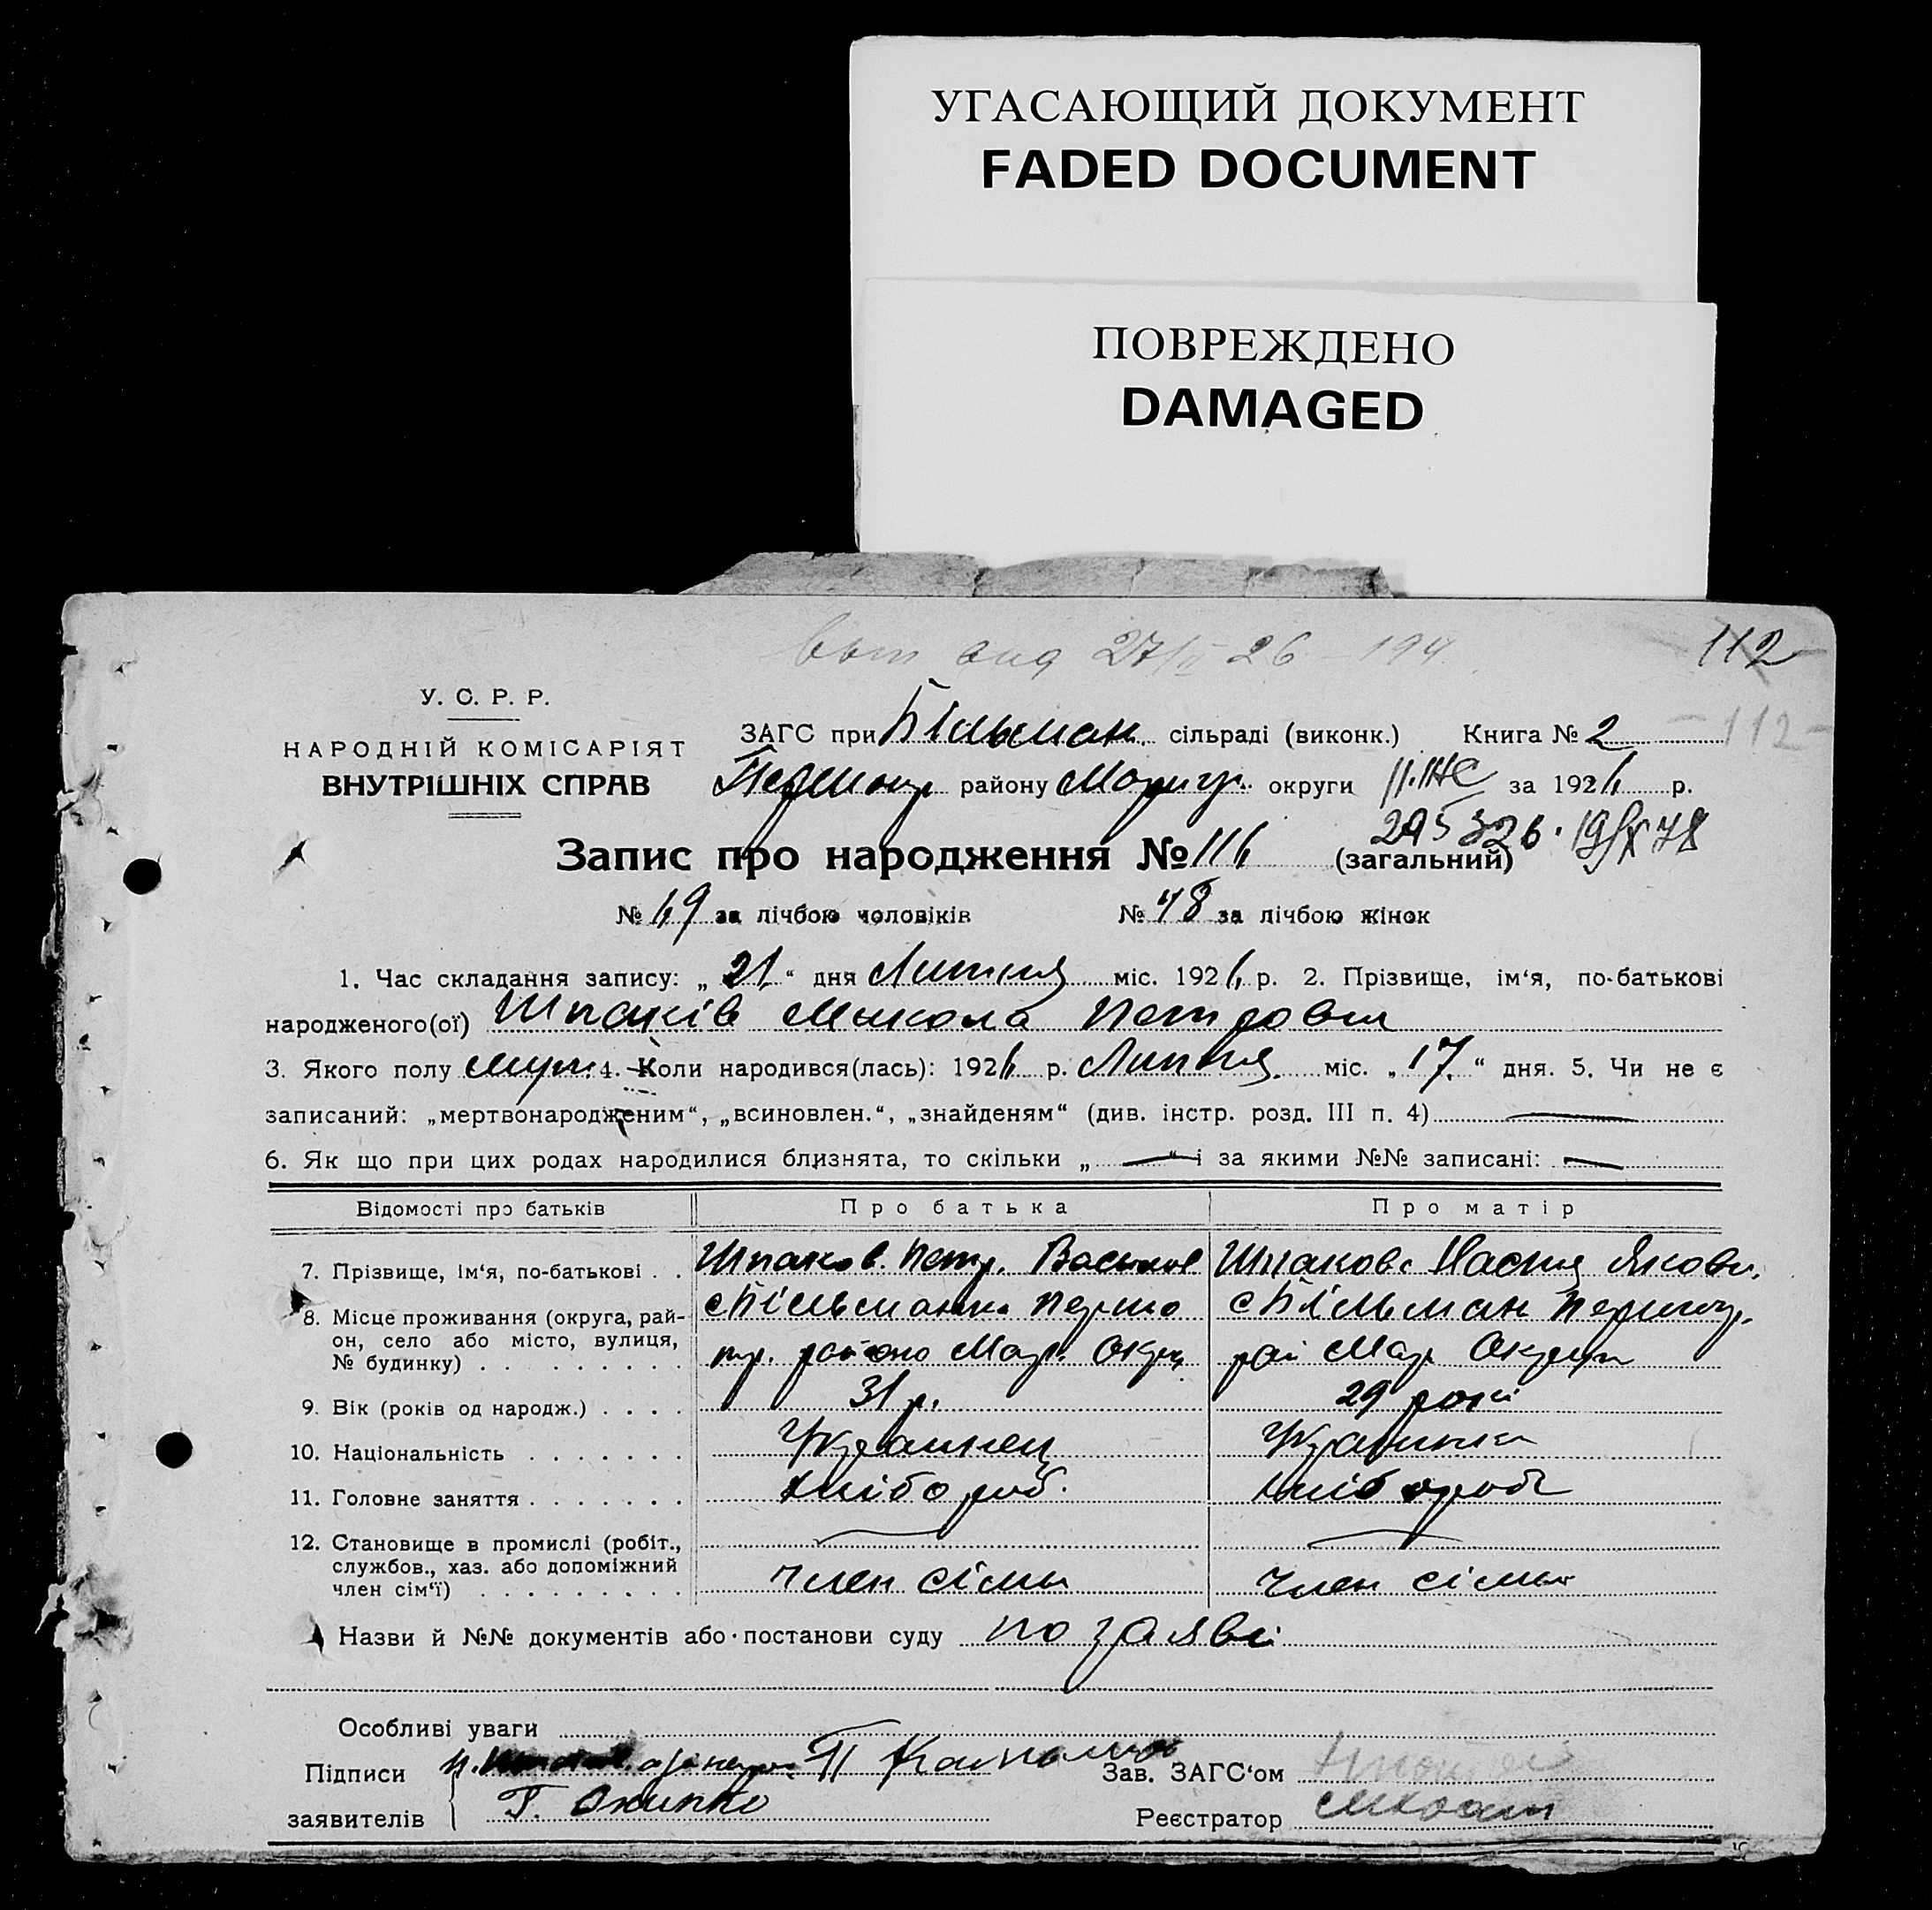 УГАСАЮЩИЙ ДОКУМЕНТ
FADED DOCUMENT
ПОВРЕЖДЕНО
DAMAGED
27/II 26 194
112
У. С. Р. Р.
НАРОДНІЙ КОМІСАРІЯТ
ВНУТРІШНІХ СПРАВ
ЗАГС при Більман. сільраді (виконк.) Книга № 2
-112-
району Маріуп. округи за 1926 р.
295326. 19/X 78
Запис про народження № 116 (загальний)
№ 69 за лічбою чоловіків № 48 за лічбою жінок
1. Час складання запису: „21“ дня міс. 1926 р. 2. Прізвище, ім‘я, по-батькові
народженого(ої) Шпаків Микола Петрович
3. Якого полу муж. 4. Коли народився(лась): 1926 р. Липня міс. „17.“ дня. 5. Чи не є
записаний: „мертвонародженим“, „всиновлен.“, „знайденям“ (див. інстр. розд. III п. 4)
6. Як що при цих родах народилися близнята, то скільки „ — “ і за якими №№ записані: —
Відомості про батьків Про батька Про матір
7. Прізвище, ім‘я, по-батькові . . Шпаков. Петр. Васильов Шпакова Настя Якови.
8. Місце проживання (округа, рай- с Більманка Першо с Більман Першотр.
он, село або місто, вулиця, тр. району Мар. Округ рай Мар Округи
№ будинку) . . . . . . . . .
9. Вік (років од народж.) . . . . 31 р. 29 рокі
10. Національність . . . . . . . Українец Українка
11. Головне заняття . . . . . . . Хлібороб. Хлібороб
12. Становище в промислі (робіт.,
службов., хаз. або допоміжний
член сім‘ї) . . . . . . . . . Член сімьи Член сімьи
Назви й №№ документів або постанови суду по заяві
Особливі уваги
Підписи
Зав. ЗАГС‘ом
заявителів Г. Онипко
Реєстратор